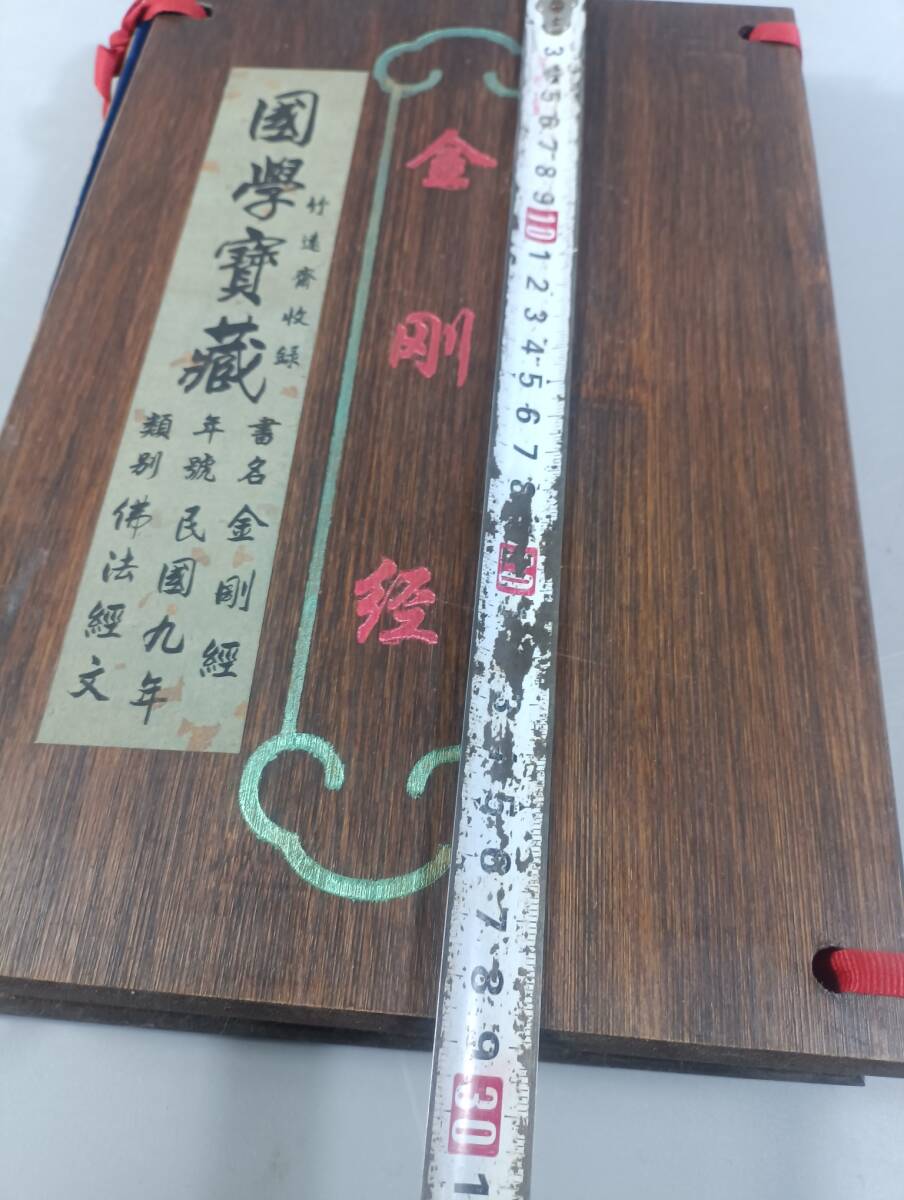 金剛经
國學寶藏
竹遠齋收録
書名 金剛經
年號 民國九年
類别 佛法經文
3 5 6 7 8 9 10 1 2 3 4 5 6 7 8
3
5 6 7 8 9 30 1